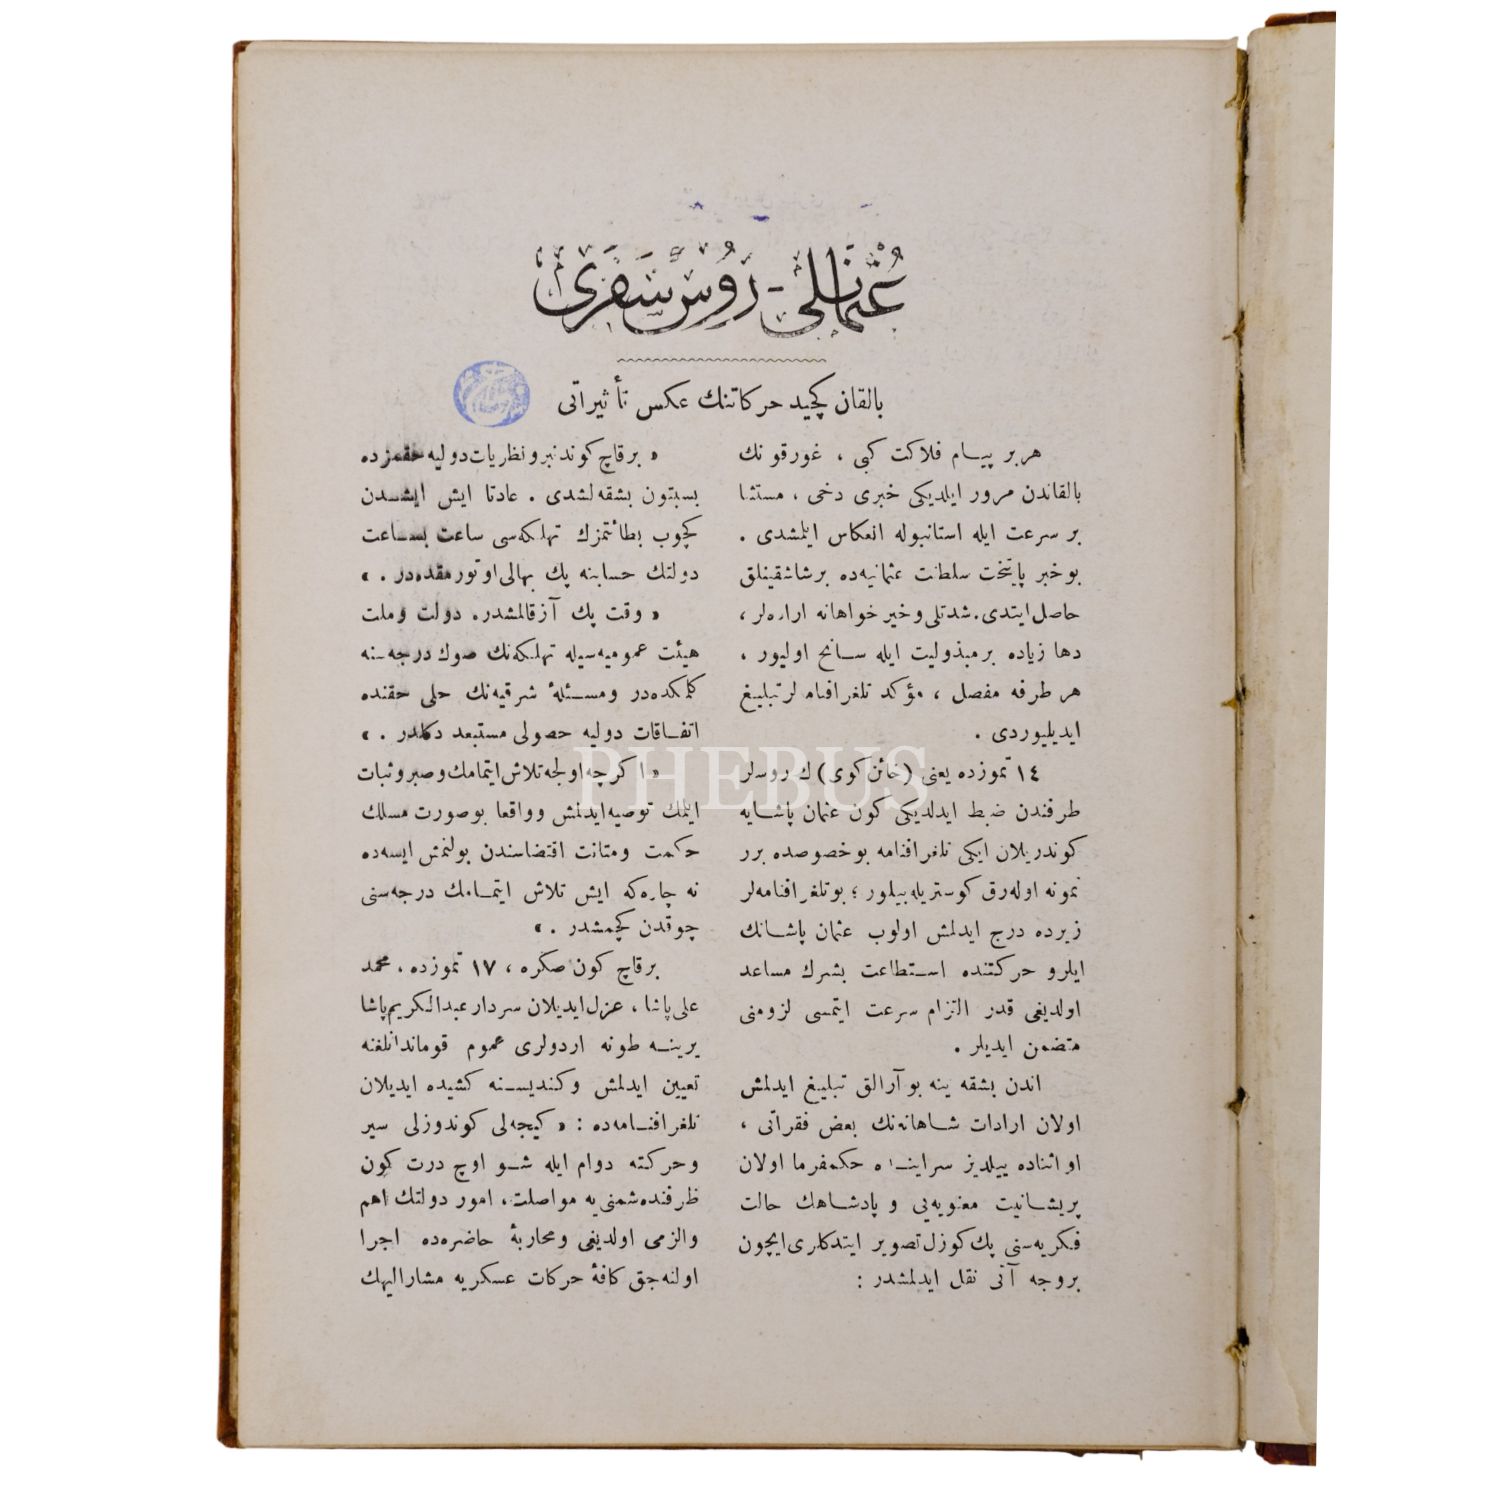 عُثمانلی - رُوس سَفَری
بالقان کچید حرکاتنك عکس تأثیراتی
هربر پیام فلاکت کبی ، غورقونك
بالقاندن مرور ایلدیکی خبری دخی ، مستثنا
بر سرعت ایله استانبوله انعکاس ایلمشدی .
بوخبر پایتخت سلطنت عثمانیه‌ده برشاشقینلق
حاصل ایتدی. شدتلی وخیرخواهانه اراده‌لر ،
دها زیاده برمبذولیت ایله سانح اولیور ،
هر طرفه مفصل ، مؤکد تلغرافنامه‌لر تبلیغ
ایدیلیوردی .
١٤ تموزده یعنی (خائن کوی) ك روسلر
طرفندن ضبط ایدلدیکی کون عثمان پاشایه
کوندریلان ایکی تلغرافنامه بوخصوصده برر
نمونه اوله‌رق کوستریله‌بیلور ؛ بوتلغرافنامه‌لر
زیرده درج ایدلمش اولوب عثمان پاشانك
ایلرو حرکتنده استطاعت بشرك مساعد
اولدیغی قدر التزام سرعت ایتمسی لزومنی
متضمن ایدیلر .
اندن بشقه ینه بوآرالق تبلیغ ایدلمش
اولان ارادات شاهانه‌نك بعض فقراتی ،
اوائناده ییلدیز سراینده حکمفرما اولان
پریشانیت معنویه‌یی و پادشاهك حالت
فکریه‌سنی پك کوزل تصویر ایتدکلری ایچون
بروجه آتی نقل ایدلمشدر :
« برقاچ کوندنبرو نظریات دولیه حقمزده
بسبتون بشقه‌لشدی . عادتا ایش ایشدن
کچوب بطائتمزك تهلکه‌سی ساعت بساعت
دولتك حسابنه پك بهالی اوتورمقده‌در . »
« وقت پك آز قالمشدر. دولت وملت
هیئت عمومیه‌سیله تهلکه‌نك صوك درجه‌سنه
کلمکده‌در ومسئلۀ شرقیه‌نك حلی حقنده
اتفاقات دولیه حصولی مستبعد دکلدر . »
« اکرچه اولجه تلاش ایتمامك وصبر وثبات
ایلمك توصیه ایدلمش وواقعا بوصورت مسلك
حکمت ومتانت اقتضاسندن بولنمش ایسه‌ده
نه چاره‌که ایش تلاش ایتمامك درجه‌سنی
چوقدن کچمشدر . »
برقاچ کون صکره ، ١٧ تموزده ، محمد
علی پاشا ، عزل ایدیلان سردار عبدالکریم پاشا
یرینه طونه اردولری عموم قوماندانلغنه
تعیین ایدلمش وکندیسنه کشیده ایدیلان
تلغرافنامه‌ده : « کیجه‌لی کوندوزلی سیر
وحرکته دوام ایله شو اوچ درت کون
ظرفنده شمنی‌یه مواصلت ، امور دولتك اهم
والزمی اولدیغی ومحاربۀ حاضره‌ده اجرا
اولنه‌جق کافۀ حرکات عسکریه مشارالیهك
PHEBUS